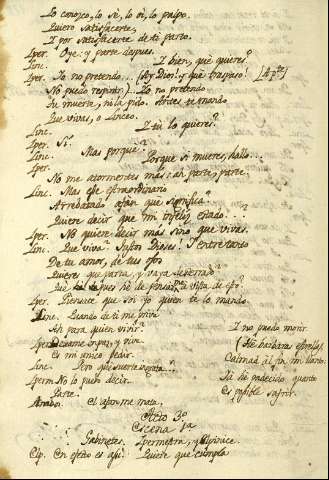 Lo conozco, lo sè, lo oi, lo palpo.
Quiero satisfacerte,
I por satisfacerte de ti parto.
Iper. Oye: y parte despues.
Linc. I bien, què quieres?
Iper. Yo no pretendo... (Ay Dios! y què traspaso! [Apte]
No puedo respirar.) Yo no pretendo
Tu muerte, ni la pido. Antes te mando
Que vivas, o Linceo.
Linc. I tù lo quieres?
Iper. Si.
Linc. Mas porquè?
Iper. Porque si mueres, hallo...
No me atormentes mas: ah parte, parte.
Linc. Mas este extraordinario
Arrebatado afan què significa?
Quiere decir que mi infeliz estado...?
Iper. No quiere decir mas sino que vivas.
Linc. Que viva? Justos Dioses! I entretanto
De tu amor, de tus ojos
Quieres que parta, y vaya desterrado?
Què he de
Iper. Piensa que soi yo quien te lo manda.
Linc. Quando de ti me priva
Ah para quien vivir?
Iper. Dexame en paz, y vive
Es mi unico pedir.
Linc. Pero què suerte ingrata...?
Iperm. No lo puedo decir.
Linc. Parte.
Ambos. El afan me mata.
I no puedo morir.
(Ah! barbaras estrellas,
Calmad al fin mi llanto:
Yà hè padecido quanto
Es posible sufrir.
Acto 3º
Escena 1a
Gabinetes. Ipermestra, y Elpinice.
Elp. En efeto es asi. Quiere que cumpla